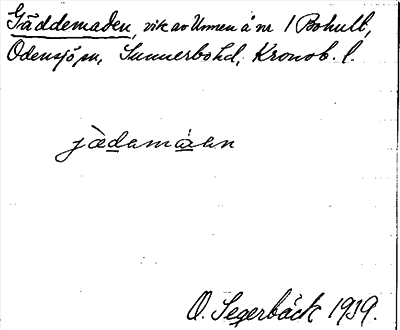 Gäddemaden, vik av Unnen å nr 1 Bohult,
Odensjö sn, Sunnerbo hd, Kronob. l.
jädamáan
O. Segerbäck 1939.